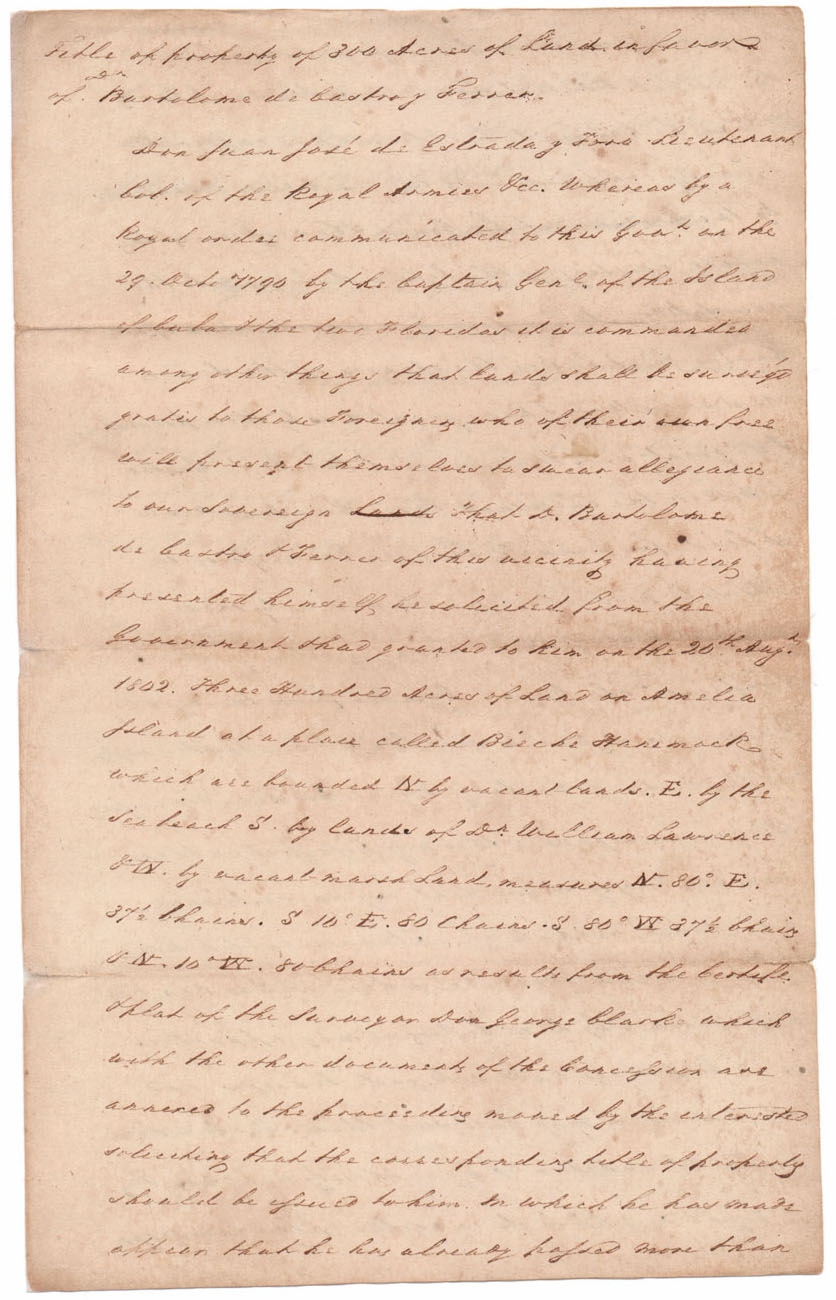 Title of property of 300 Acres of Land in favor
of Dn Bartolome de Castro y Ferrer.
Don Juan José de Estrada y Toro Lieutenant
Col. of the Royal Armies &cc. Whereas by a
Royal order communicated to this Govt. on the
29. Octo 1790 by the Captain Genl. of the Island
of Cuba & the two Floridas it is commanded
among other things that lands shall be survey'd
gratis to those Foreigners who of their own free
will present themselves to swear allegiance
to our Sovereign Lands That D. Bartolome
de Castro & Ferrer of this vicinity having
presented himself he solicited from the
Government & had granted to him on the 20th Augt.
1802. Three Hundred Acres of Land on Amelia
Island at a place called Hammock
which are bounded N by vacant lands. E. by the
Sea beach S. by lands of Dn William Lawrence
& W. by vacant marsh Land, measures N. 80° E.
37½ Chains. S 10° E. 80 Chains. S. 80° W 37½ Chains
& N. 10° W. 80 Chains as results from the Certife.
& plat of the Surveyor Don George Clark which
with the other documents of the Concession are
annexed to the proceeding moved by the interested
soliciting that the corresponding title of property
should be issued to him. In which he has made
appear that he has already passed more than